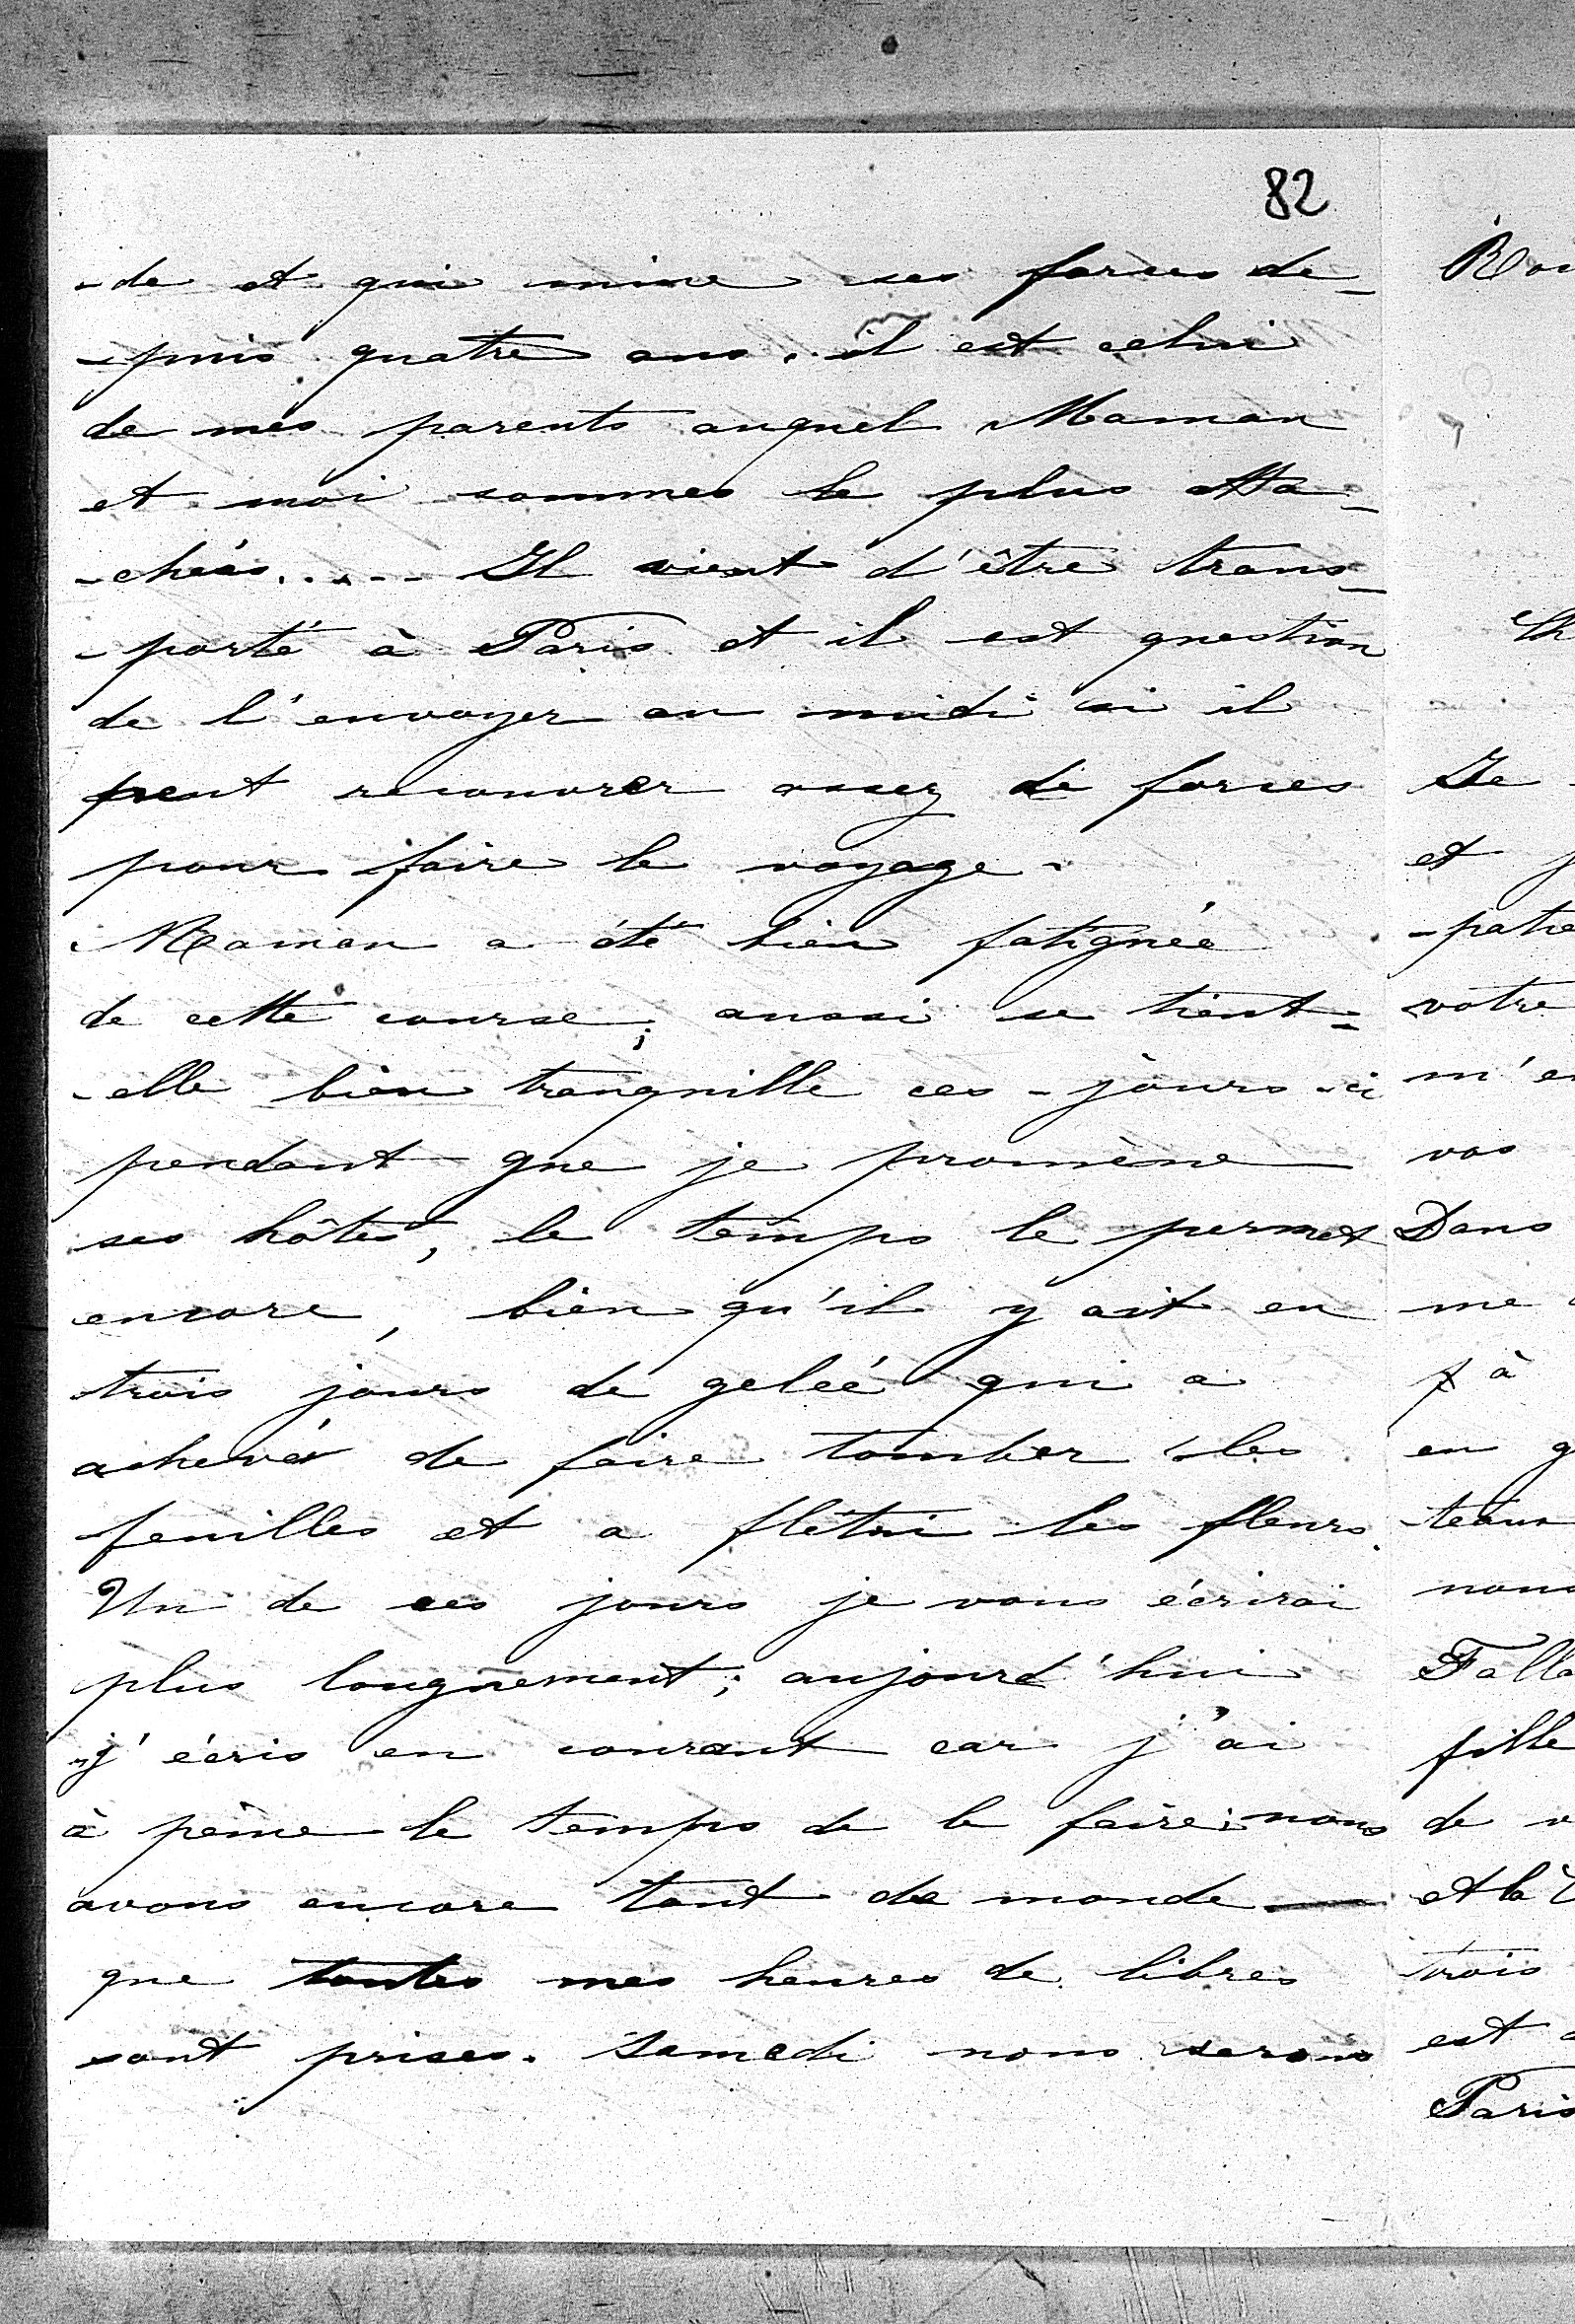 82
-de et qui mine ses forces de-
-puis quatre ans. il est celui
de mes parents auquel Maman
et moi sommes le plus atta-
-chées..... Il vient d'être trans-
-porté à Paris et il est question
de l'envoyer au midi si il
peut recouvrer assez de forces
pour faire le voyage.
Maman a été bien fatiguée
de cette course; aussi se tient-
-elle bien tranquille ces-jours-ci
pendant que je promène
ses hôtes, le temps le permet
encore, bien qu'il y ait eu
trois jours de gelée qui a
achevé de faire tomber les
feuilles et a flétri les fleurs.
Un de ces jours je vous écrirai
plus longuement; aujourd'hui
j'écris en courant car j'ai
à peine le temps de le faire; nous
avons encore tant de monde
que toutes mes heures de libres
sont prises. Samedi nous serons
Je
et
-patie
votre
m'en
vos
Dans
me
à
en
nous
fille
de
et la
trois
est
Paris